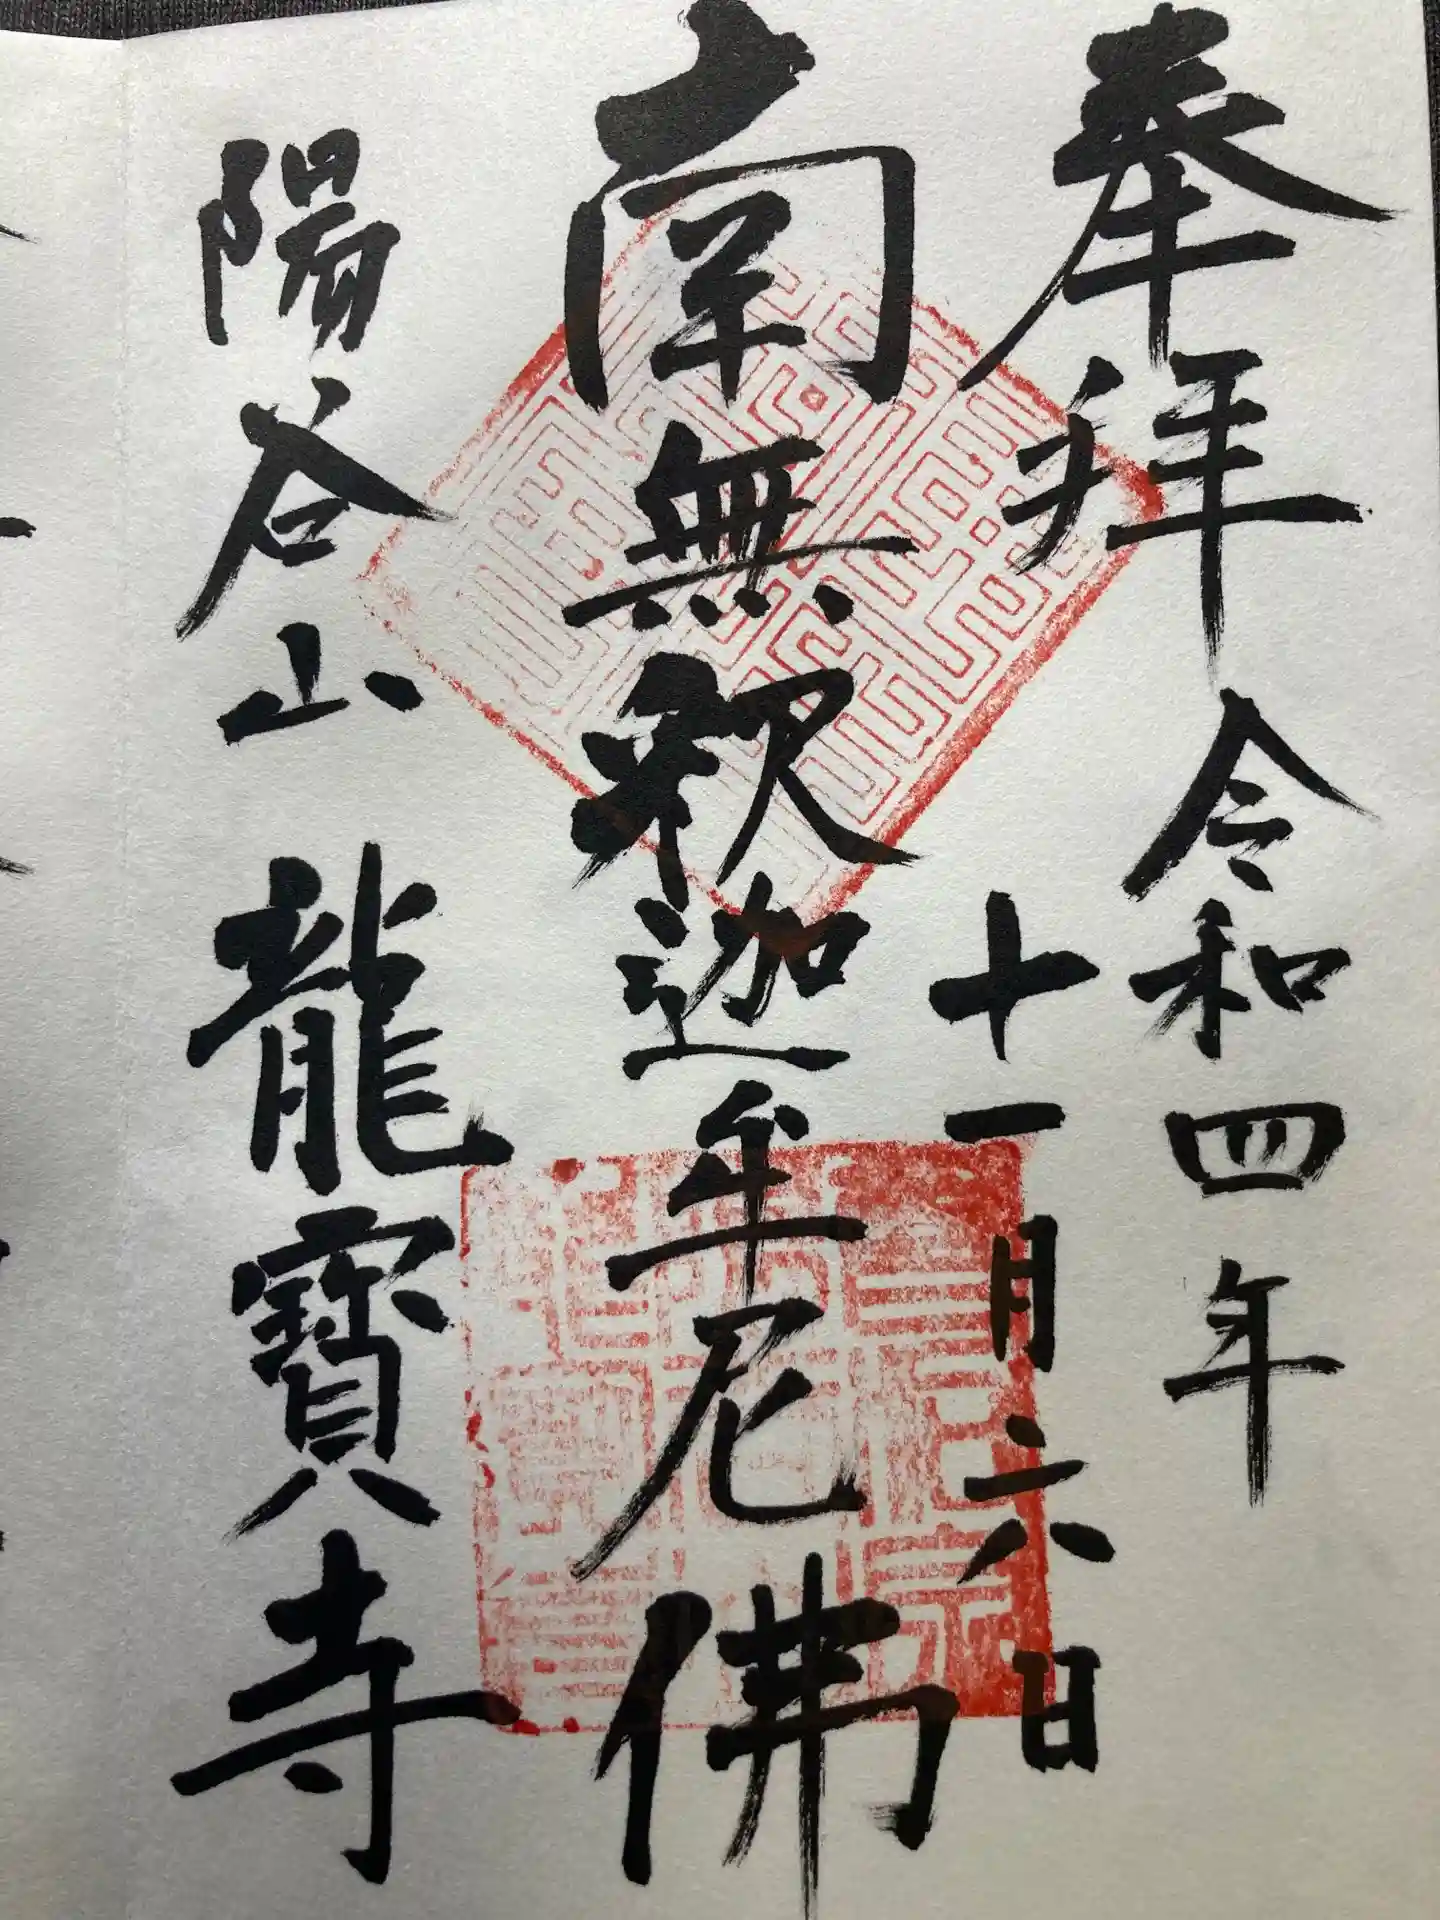 奉拜 令和四年
十一月六日
南無釈迦牟尼佛
陽谷山 龍寶寺